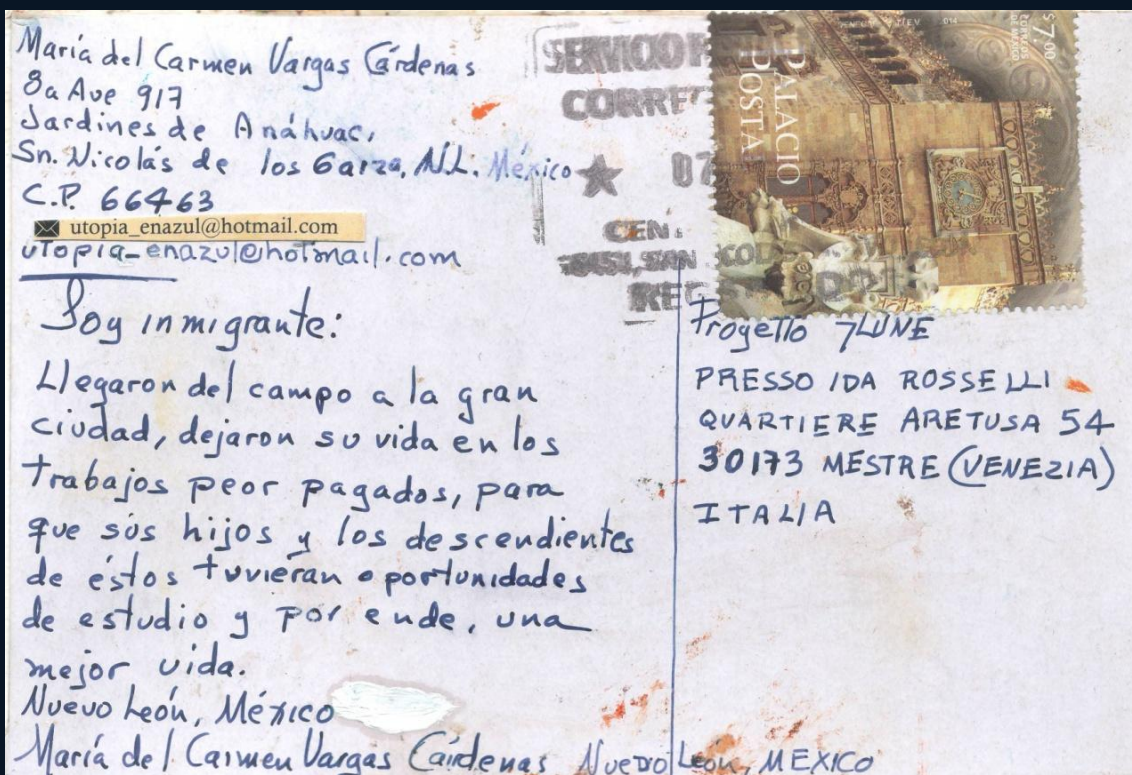 María del Carmen Vargas Cárdenas
8a Ave 917
Jardines de Anáhuac,
Sn. Nicolás de los Garza, N.L. México
C.P. 66463
utopia_enazul@hotmail.com
utopia_enazul@hotmail.com
Soy inmigrante:
Llegaron del campo a la gran
ciudad, dejaron su vida en los
trabajos peor pagados, para
que sus hijos y los descendientes
de éstos tuvieran oportunidades
de estudio y por ende, una
mejor vida.
Nuevo León, México
María del Carmen Vargas Cárdenas Nuevo León, MEXICO
SERVICIO
CORRE
07
CEN
SAN
REG
$7.00
PALACIO
POSTA
Progetto 7LUNE
PRESSO IDA ROSSELLI
QUARTIERE ARETUSA 54
30173 MESTRE (VENEZIA)
ITALIA